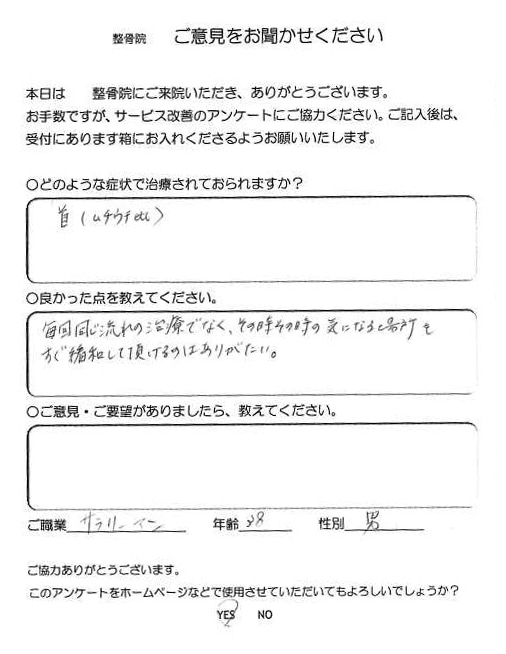 整骨院 ご意見をお聞かせください
本日は 整骨院にご来院いただき、ありがとうございます。
お手数ですが、サービス改善のアンケートにご協力ください。ご記入後は、
受付にあります箱にお入れくださるようお願いいたします。
○どのような症状で治療されておられますか？
首（ムチウチetc）
○良かった点を教えてください。
毎回同じ流れの治療でなく、その時その時の気になる場所を
すぐ緩和して頂けるのはありがたい。
○ご意見・ご要望がありましたら、教えてください。
ご職業 サラリーマン 年齢 38 性別 男
ご協力ありがとうございます。
このアンケートをホームページなどで使用させていただいてもよろしいでしょうか？
YES NO